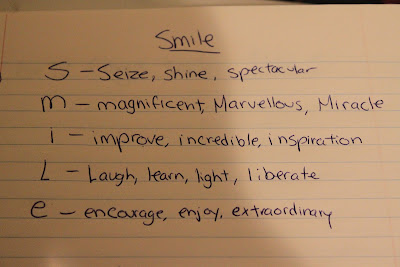 Smile
S - Seize, shine, spectacular
m - magnificent, Marvellous, Miracle
i - improve, incredible, inspiration
L - Laugh, learn, light, liberate
e - encourage, enjoy, extraordinary